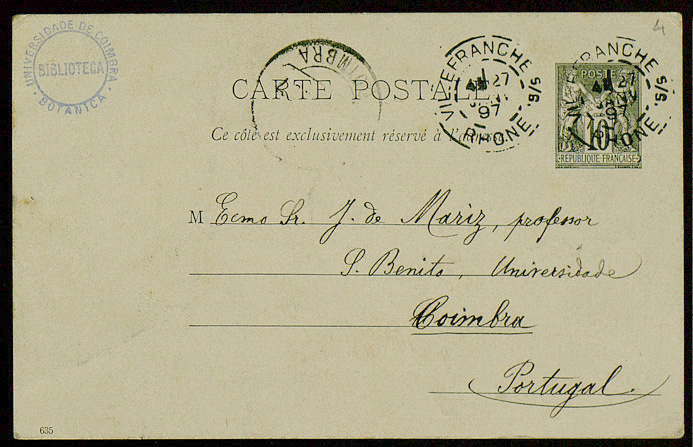 4
UNIVERSIDADE DE COIMBRA
BIBLIOTECA
BOTANICA
COIMBRA
CARTE POSTALE
VILLEFRANCHE S/S.
27
97
RHONE
VILLEFRANCHE S/S.
27
JANV
97
RHONE
POSTES
10
REPUBLIQUE FRANÇAISE
Ce côté est exclusivement réservé à l'adresse
M Ecmo Sr. J. de Mariz, professor
S. Benito, Universidade
Coimbra
Portugal.
635